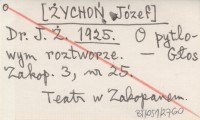 [ŻYCHOŃ Józef]
Dr. J. Ż. 1925. O pytlo-
wym roztworze. — Głos
Zakop. 3, nr 25.
Teatr w Zakopanem.